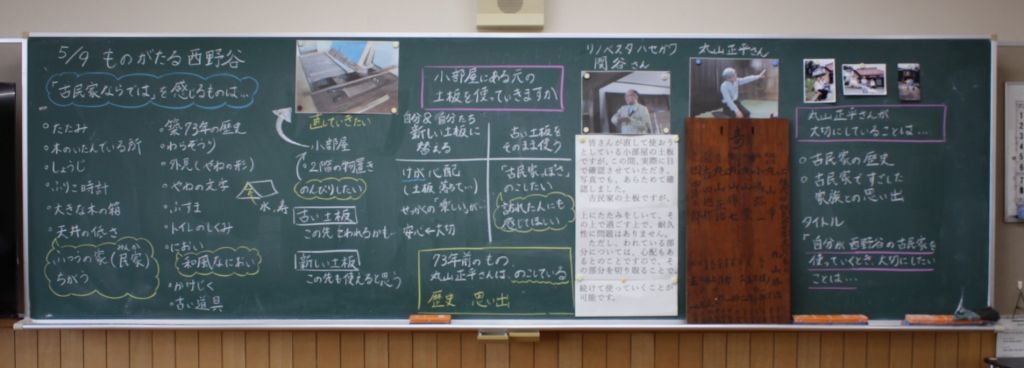 5/9 ものがたる西野谷
「古民家ならでは」を感じるものは…
○たたみ
○木のいたんでいる所
○しょうじ
○ふりこ時計
○大きな木の箱
○天井の低さ
ふつうの家(民家)
みんか
ちがう
○築73年の歴史
○わらぞうり
○外見(やねの形)
○やねの文字
水、寿
○ふすま
○トイレのしくみ
○におい
和風なにおい
○かけじく
○古い道具
直していきたい
小部屋
2階の物置き
のんびりしたい
古い土板
この先こわれるかも…
新しい土板
この先も使えると思う
小部屋にある元の
土板を使っていきますか
自分&自分たち
新しい土板に
替える
古い土板を
そのまま使う
けが心配
(土板落て…)
せっかくの"楽しい"が…
安心←大切
「古民家っぽさ」
のこしたい
訪れた人にも
感じてほしい
73年前のもの
丸山正平さんは、のこしている
歴史 思い出
リノベスタハセガワ
関谷さん
丸山正平さん
皆さんが直して使おう
としている小部屋の土板
ですが、この間、実際に目
で確認させていただき、
写真でも、あらためて確
認しました。
古民家の土板ですが、
上にたたみをしいて、そ
の上で過ごす上で、耐久
性に問題はありません。
ただし、われている部
分については、心配もあ
るとのことですので、そ
の部分を切り取ることで
続けて使っていくことが
可能です。
丸山正平さんが
大切にしていることは…
○古民家の歴史
○古民家ですごした
家族との思い出
タイトル
「自分が西野谷の古民家を
使っていくとき、大切にしたい
ことは…